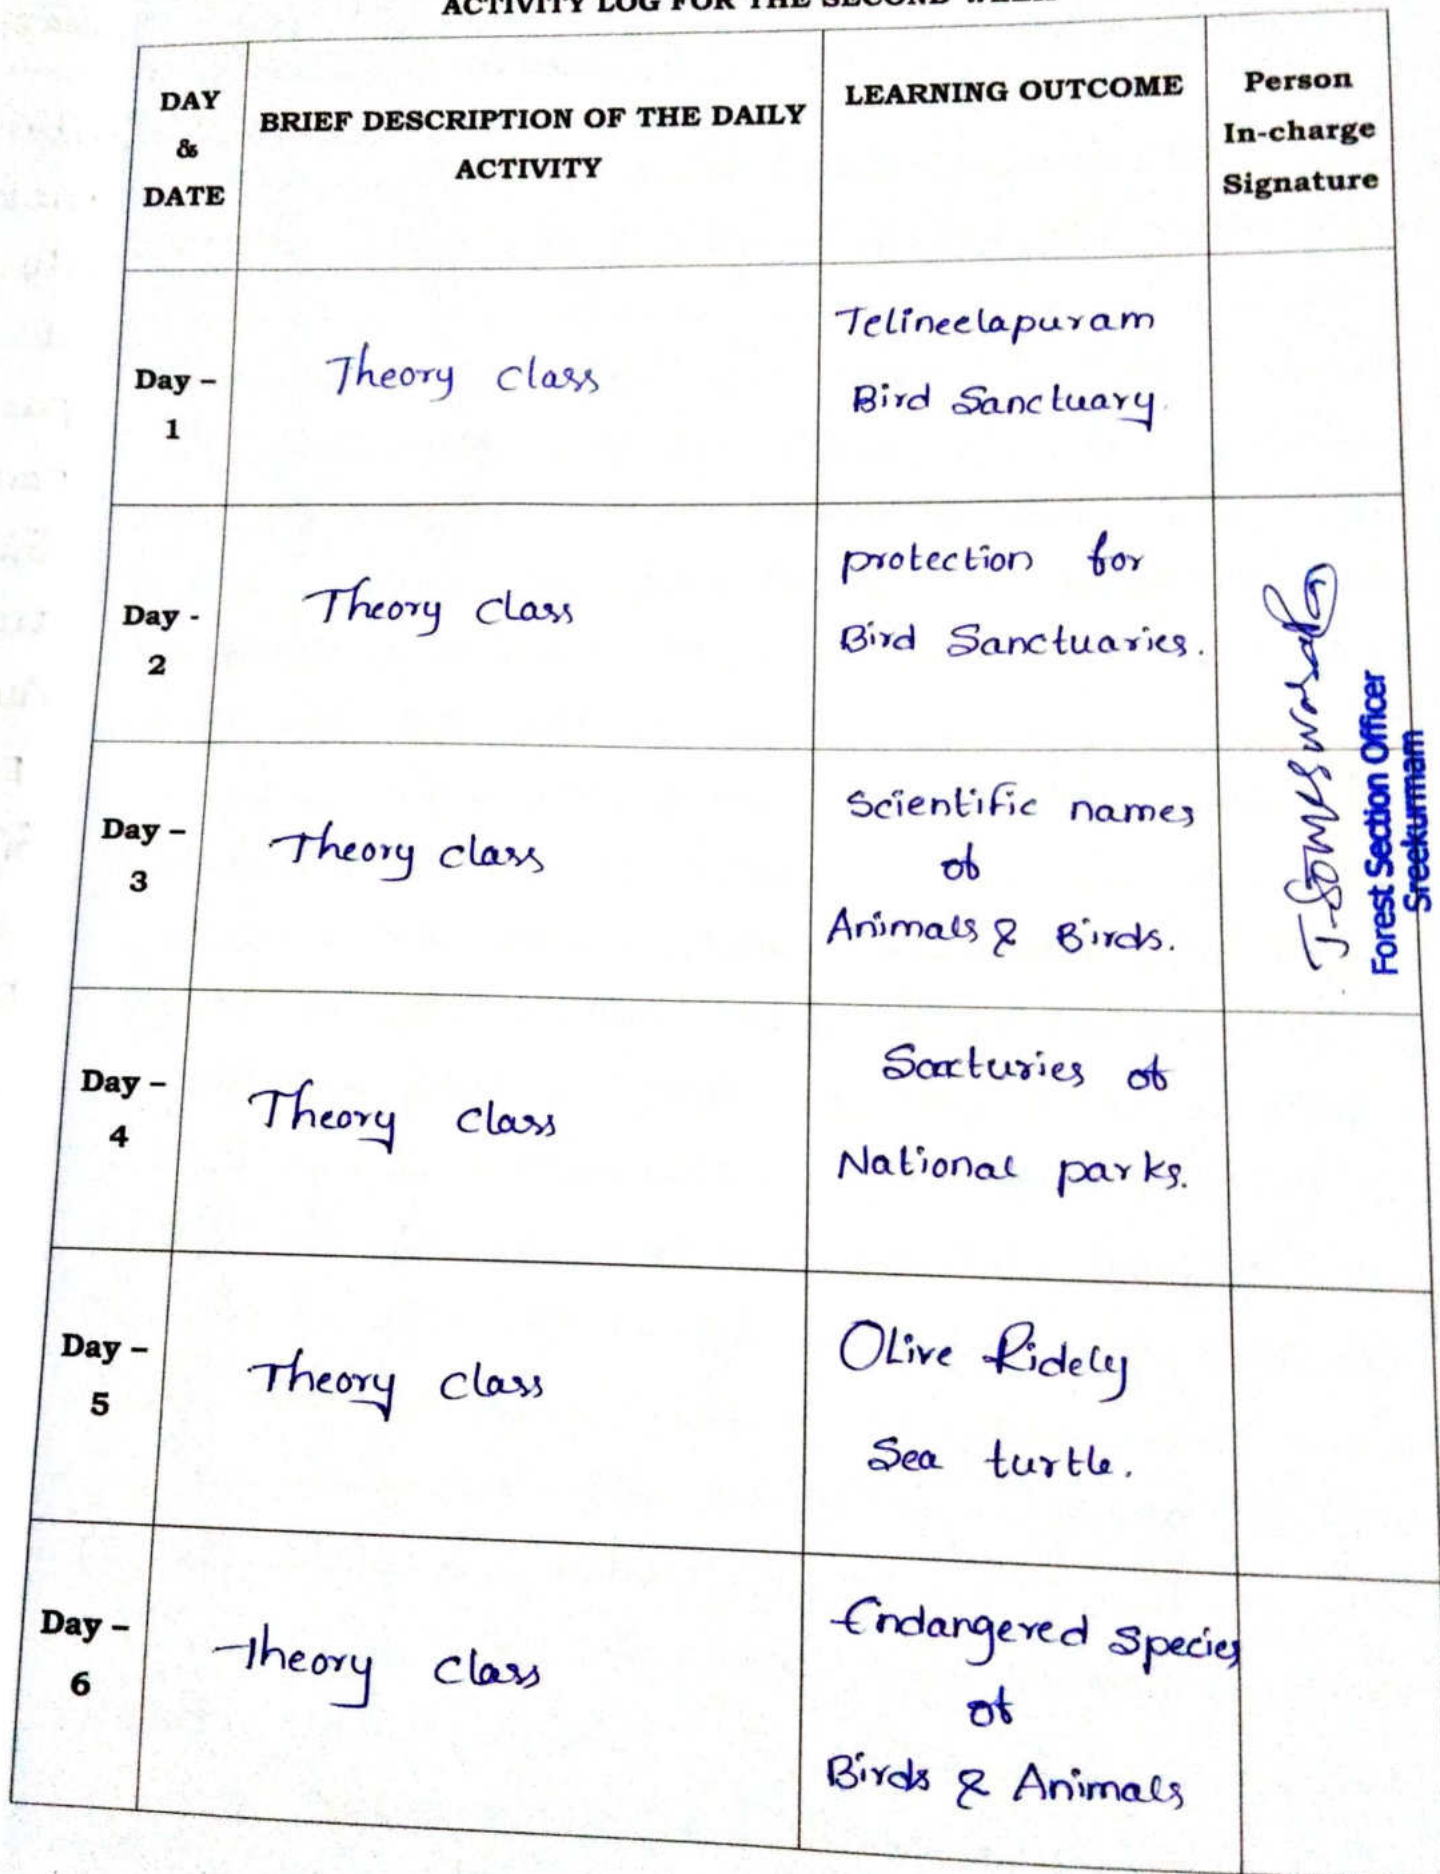 ACTIVITY LOG FOR THE SECOND WEEK
DAY
&
DATE
BRIEF DESCRIPTION OF THE DAILY
ACTIVITY
LEARNING OUTCOME
Person
In-charge
Signature
Day –
1
Theory class
Telineelapuram
Bird Sanctuary.
Day -
2
Theory class
protection for
Bird Sanctuaries.
Day –
3
Theory class
Scientific names
of
Animals & Birds.
Forest Section Officer
Sreekurmam
Day –
4
Theory class
of
National parks.
Day –
5
Theory class
Olive Ridely
Sea turtle.
Day –
6
Theory class
Endangered Species
of
Birds & Animals